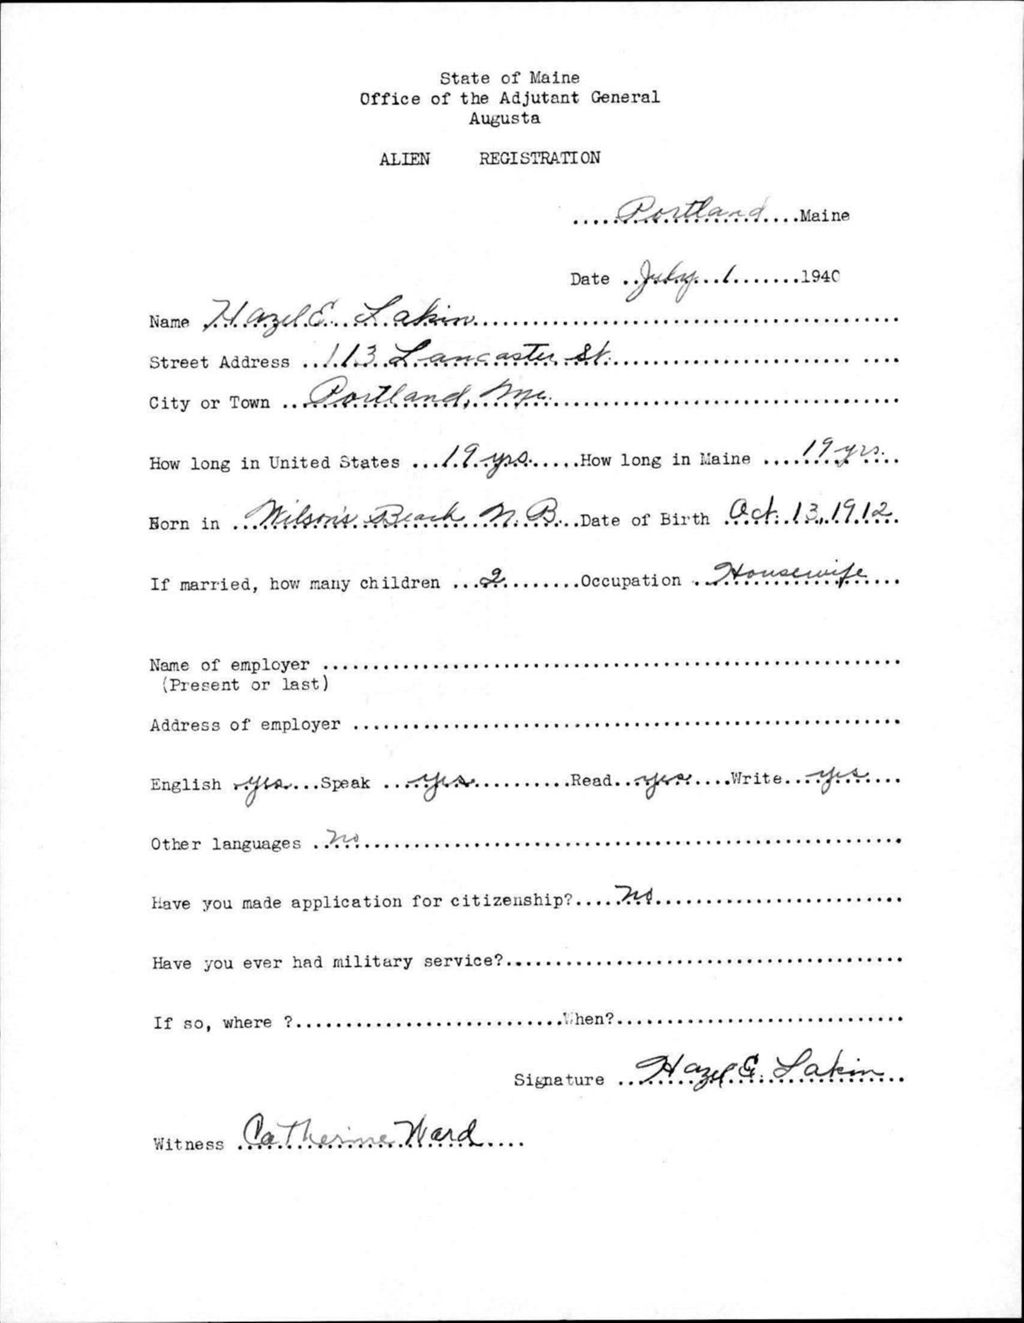 State of Maine
Office of the Adjutant General
Augusta
ALIEN REGISTRATION
....Portland....Maine
Date ..July...1.......1940
Name Hazel E. Lakin
Street Address ...113 Lancaster St.
City or Town ..Portland, Me.
How long in United States ...19 yrs.....How long in Maine ....19 yrs..
Born in ..Wilson's Beach N.B...Date of Birth Oct. 13, 1912.
If married, how many children ...2........Occupation ..Housewife...
Name of employer ..........
(Present or last)
Address of employer ..........
English yes...Speak ...yes..........Read..yes....Write..yes...
Other languages .no..........
Have you made application for citizenship?....No..........
Have you ever had military service?..........
If so, where ?..........When?..........
Signature ..Hazel E. Lakin..
Witness Catherine Ward....